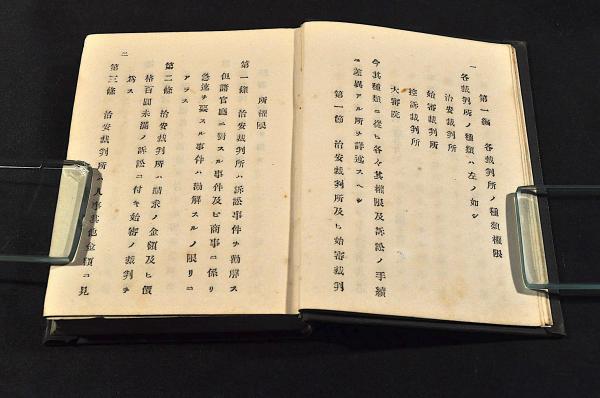 一
第一編 各裁判所ノ種類權限
各裁判所ノ種類ハ左ノ如シ
治安裁判所
始審裁判所
控訴裁判所
大審院
今其種類ニ從ヒ各々其權限及訴訟ノ手續
ニ差異アル所ヲ詳述スヘシ
第一節 治安裁判所及ヒ始審裁判
二
所權限
第一條 治安裁判所ハ訴訟事件ヲ勸解ス
但諸官廳ニ對スル事件及ヒ商事ニ係リ
急速ヲ要スル事件ハ勸解スルノ限リニ
アラス
第二條 治安裁判所ハ請求ノ金額及ヒ價
格百圓未滿ノ訴訟ニ付キ始審ノ裁判ヲ
爲ス
第三條 治安裁判所ハ人事其他金額ニ見